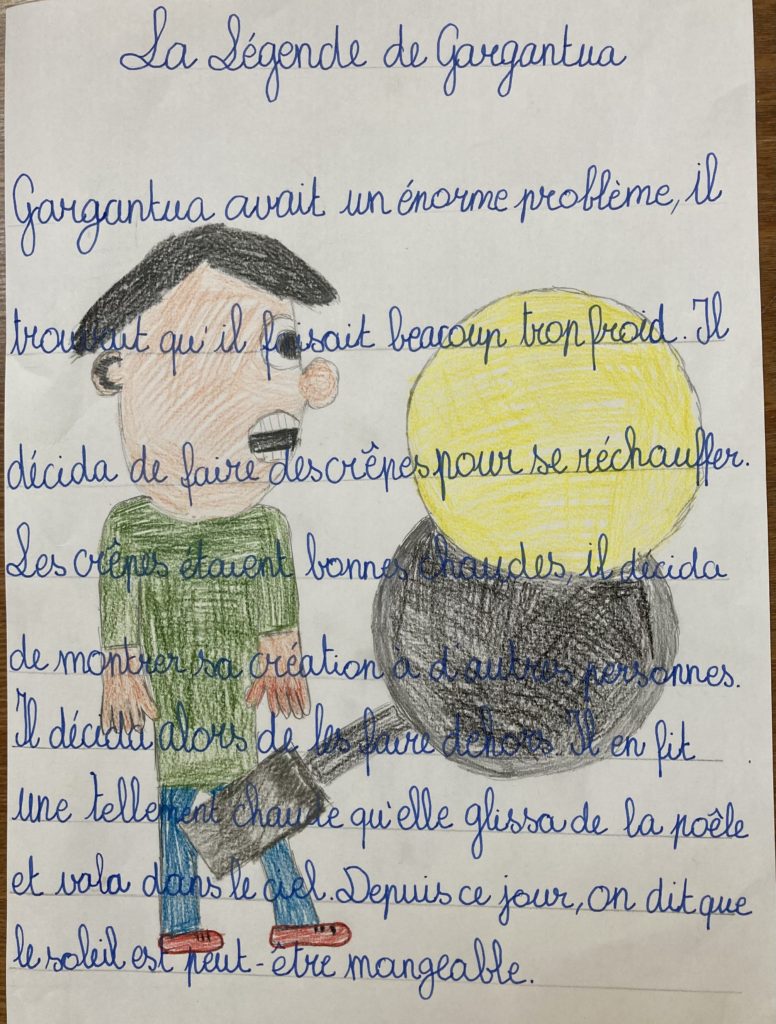 La Légende de Gargantua
Gargantua avait un énorme problème, il
trouvait qu'il faisait beacoup trop froid. Il
décida de faire des crêpes pour se réchauffer.
Les crêpes étaient bonnes chaudes, il décida
de montrer sa création à d'autres personnes.
Il décida alors de les faire dehors. Il en fit
une tellement chaude qu'elle glissa de la poêle
et vola dans le ciel. Depuis ce jour, on dit que
le soleil est peut-être mangeable.